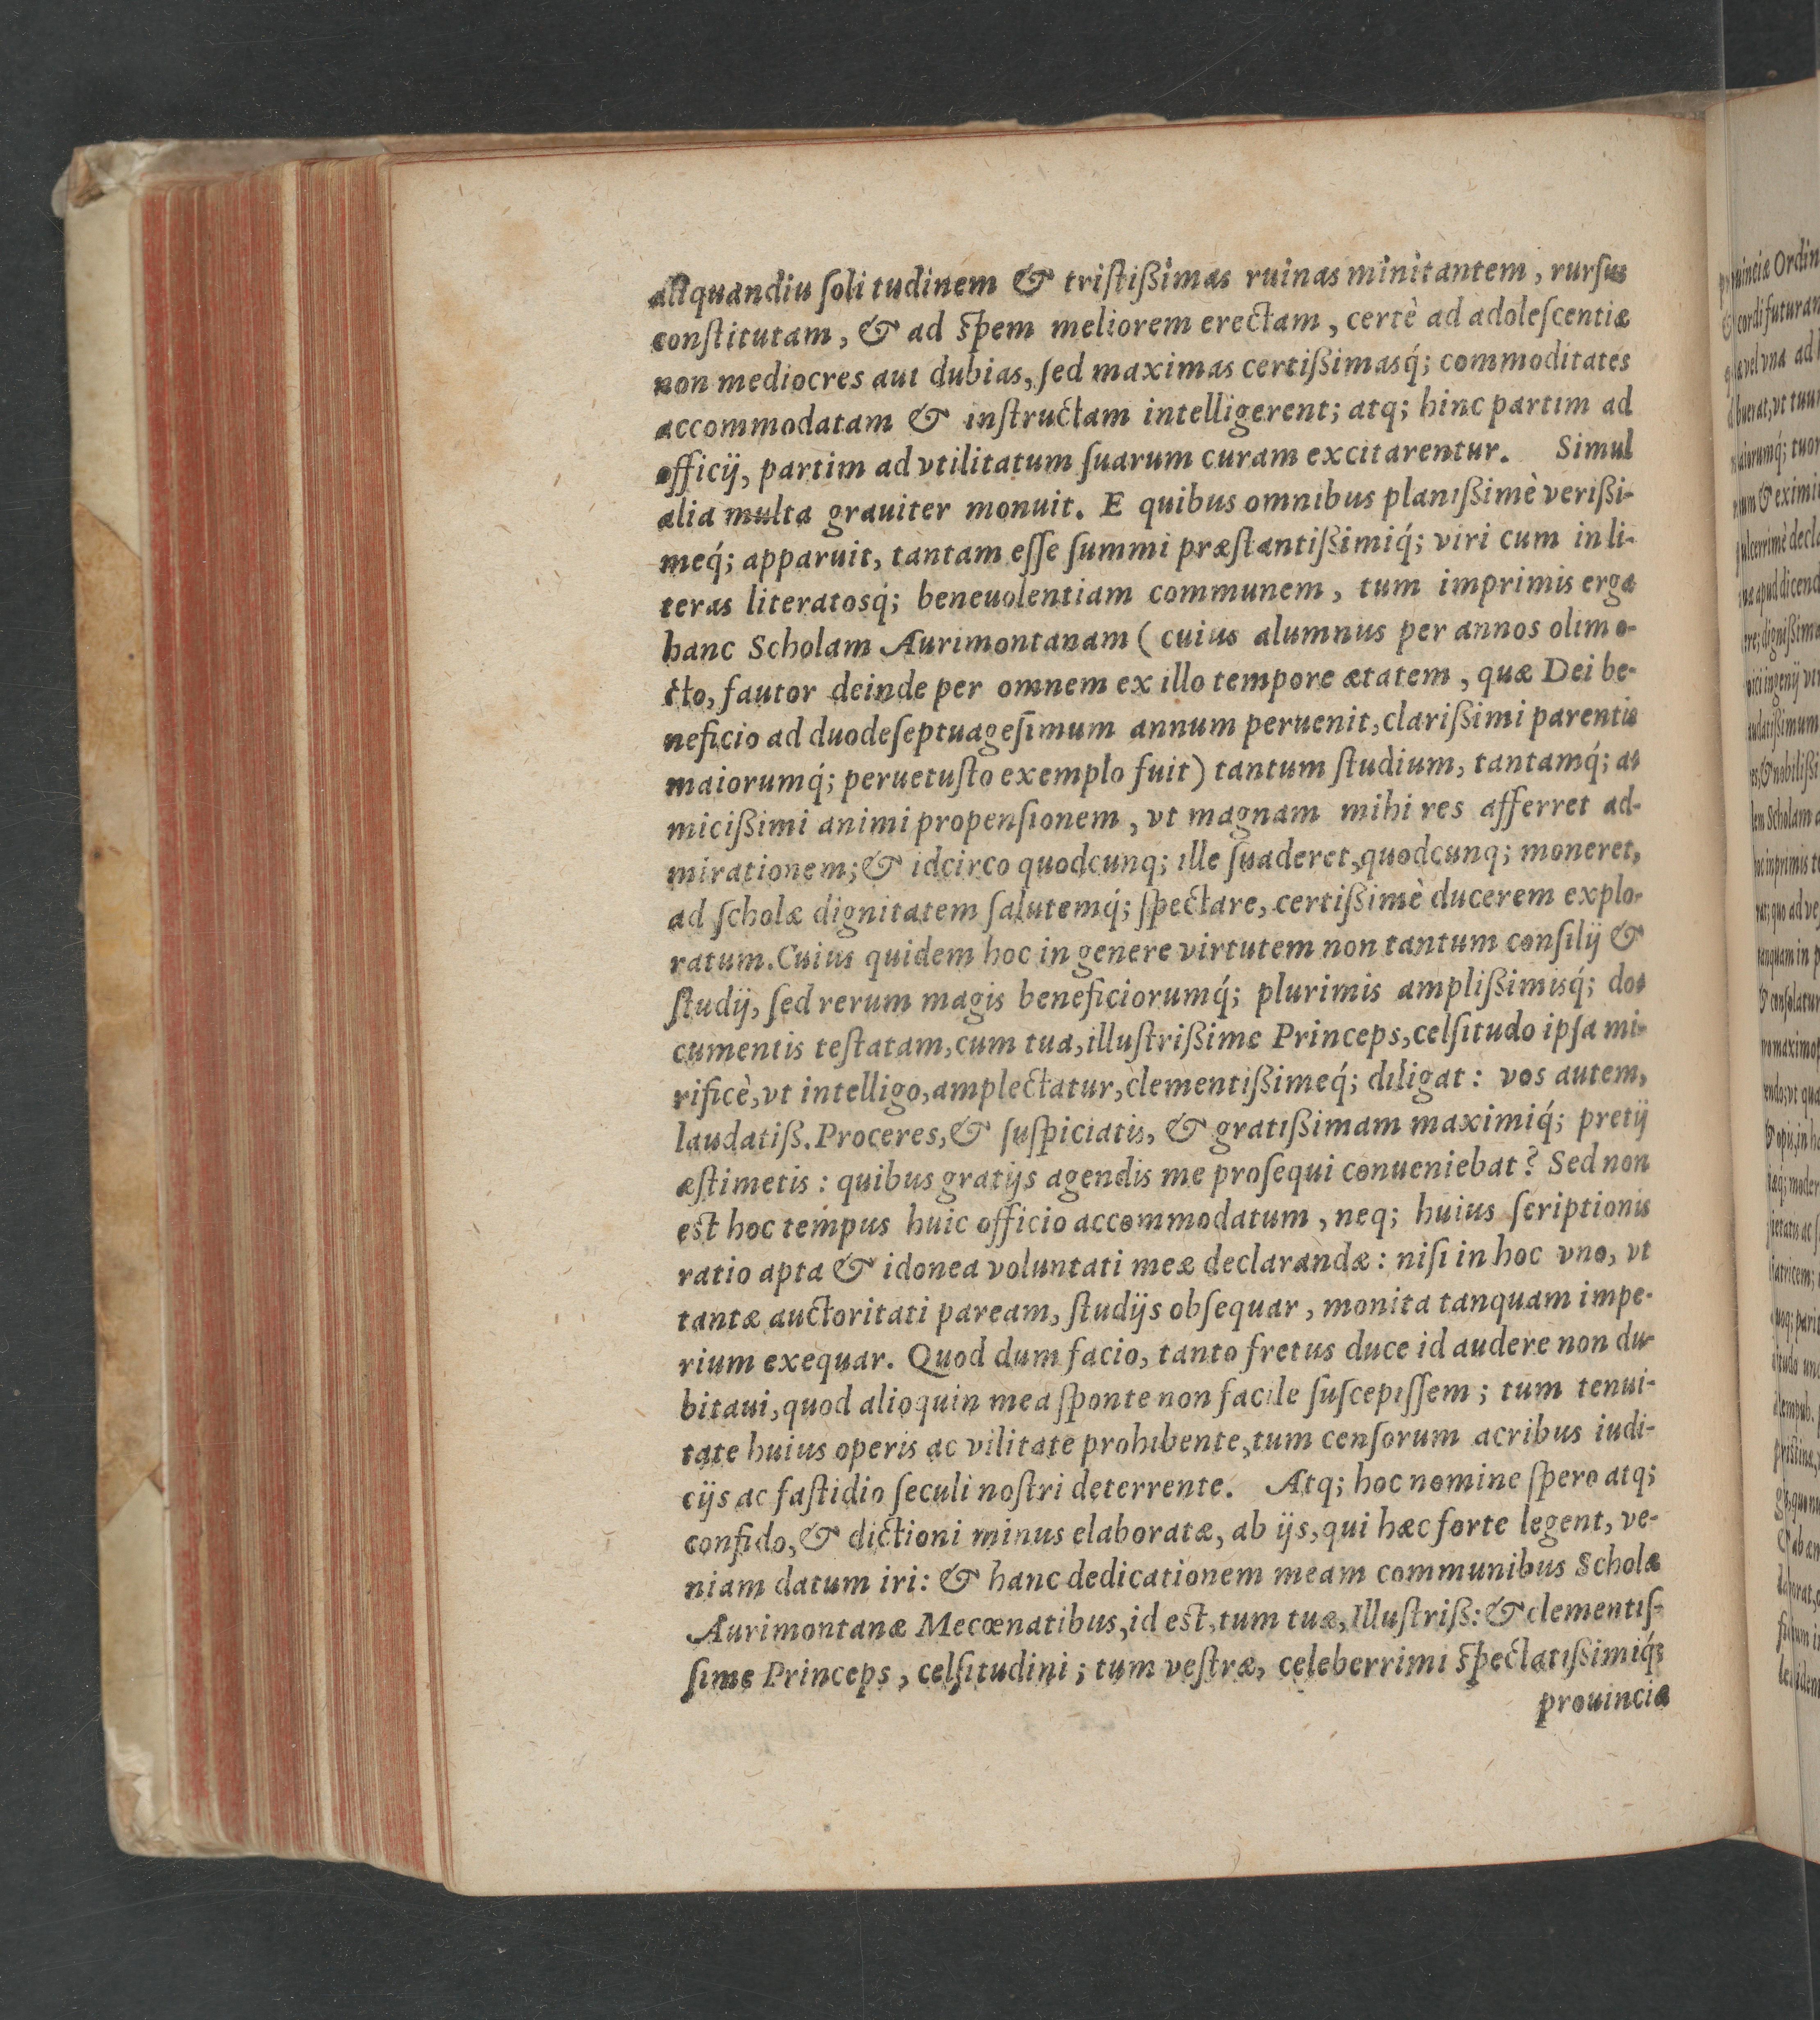 aliquandiu ſolitudinem & triſtißimas ruinas minitantem, rurſus
conſtitutam, & ad ſpem meliorem erectam, certè ad adoleſcentiæ
non mediocres aut dubias, ſed maximas certißimasq́; commoditates
accommodatam & inſtructam intelligerent; atq; hinc partim ad
officij, partim ad vtilitatum ſuarum curam excitarentur. Simul
alia multa grauiter monuit. E quibus omnibus planißimè verißi-
meq́; apparuit, tantam eſſe ſummi præſtantißimiq́; viri cum in li-
teras literatosq́; beneuolentiam communem, tum imprimis erga
hanc Scholam Aurimontanam (cuius alumnus per annos olim o-
cto, fautor deinde per omnem ex illo tempore ætatem, quæ Dei be-
neficio ad duodeſeptuageſimum annum peruenit, clarißimi parentis
maiorumq́; peruetuſto exemplo fuit) tantum ſtudium, tantamq́; a-
micißimi animi propenſionem, vt magnam mihi res afferret ad-
mirationem; & idcirco quodcunq; ille ſuaderet, quodcunq; moneret,
ad ſcholæ dignitatem ſalutemq́; ſpectare, certißimè ducerem explo-
ratum. Cuius quidem hoc in genere virtutem non tantum conſilij &
ſtudij, ſed rerum magis beneficiorumq́; plurimis amplißimisq́; do-
cumentis teſtatam, cum tua, illuſtrißime Princeps, celſitudo ipſa mi-
rificè, vt intelligo, amplectatur, clementißimeq́; diligat: vos autem,
laudatiß. Proceres, & ſuſpiciatis, & gratißimam maximiq́; pretij
æſtimetis: quibus gratijs agendis me proſequi conueniebat? Sed non
est hoc tempus huic officio accommodatum, neq; huius ſcriptionis
ratio apta & idonea voluntati meæ declarandæ: niſi in hoc vno, vt
tantæ auctoritati paream, ſtudijs obſequar, monita tanquam impe-
rium exequar. Quod dum facio, tanto fretus duce id audere non du-
bitaui, quod alioquin mea ſponte non facile ſuſcepiſſem; tum tenui-
tate huius operis ac vilitate prohibente, tum cenſorum acribus iudi-
cijs ac faſtidio ſeculi noſtri deterrente. Atq; hoc nomine ſpero atq;
confido, & dictioni minus elaboratæ, ab ijs, qui hæc forte legent, ve-
niam datum iri: & hanc dedicationem meam communibus Scholæ
Aurimontanæ Mecœnatibus, id est, tum tuæ, Illuſtriß: & clementiſ-
ſime Princeps, celſitudini; tum veſtræ, celeberrimi ſpectatißimiq́;
prouinciæ